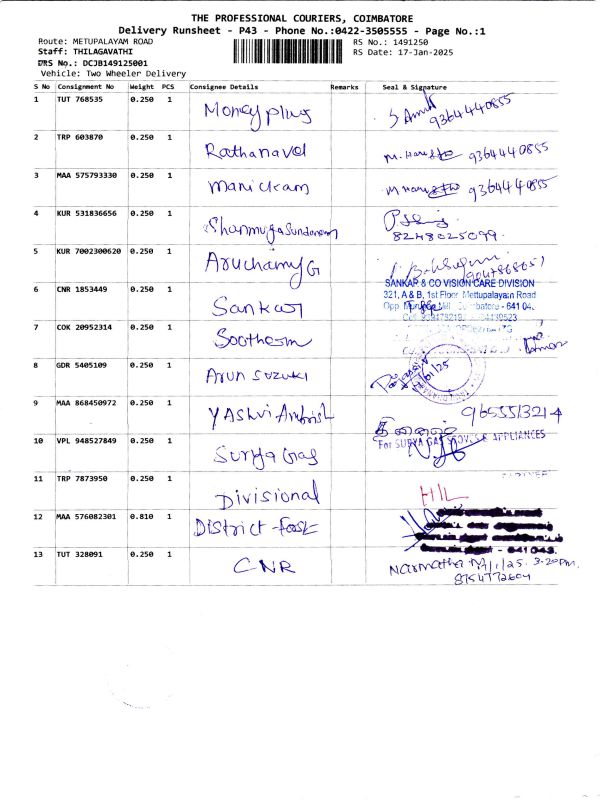 THE PROFESSIONAL COURIERS, COIMBATORE
Delivery Runsheet - P43 - Phone No.:0422-3505555 - Page No.:1
Route: METUPALAYAM ROAD RS No.: 1491250
Staff: THILAGAVATHI RS Date: 17-Jan-2025
DRS No.: DCJB149125001
Vehicle: Two Wheeler Delivery
S No Consignment No Weight PCS Consignee Details Remarks Seal & Signature
1 TUT 768535 0.250 1 Moneyplus 9364440855
2 TRP 603870 0.250 1 Rathanavel 9364440855
3 MAA 575793330 0.250 1 Manickam 9364440855
4 KUR 531836656 0.250 1 Shanmugasundaram 8248025099
5 KUR 7002300620 0.250 1 Aruchamy G
SANKAR & CO VISION CARE DIVISION
321, A & B, 1st Floor, Mettupalayam Road
6 CNR 1853449 0.250 1 Sankar
7 COK 20952314 0.250 1
8 GDR 5405109 0.250 1 Arun Suzuki
9 MAA 868450972 1 0.250 Yashvi 9655513214
10 VPL 948527849 0.250 1 Surya Gas For SURYA GAS STOVES & APPLIANCES
11 TRP 7873950 0.250 1 Divisional HIL
12 MAA 576082301 0.810 1 District
13 TUT 328091 0.250 1 CNR Narmatha 3.20pm
8754772604